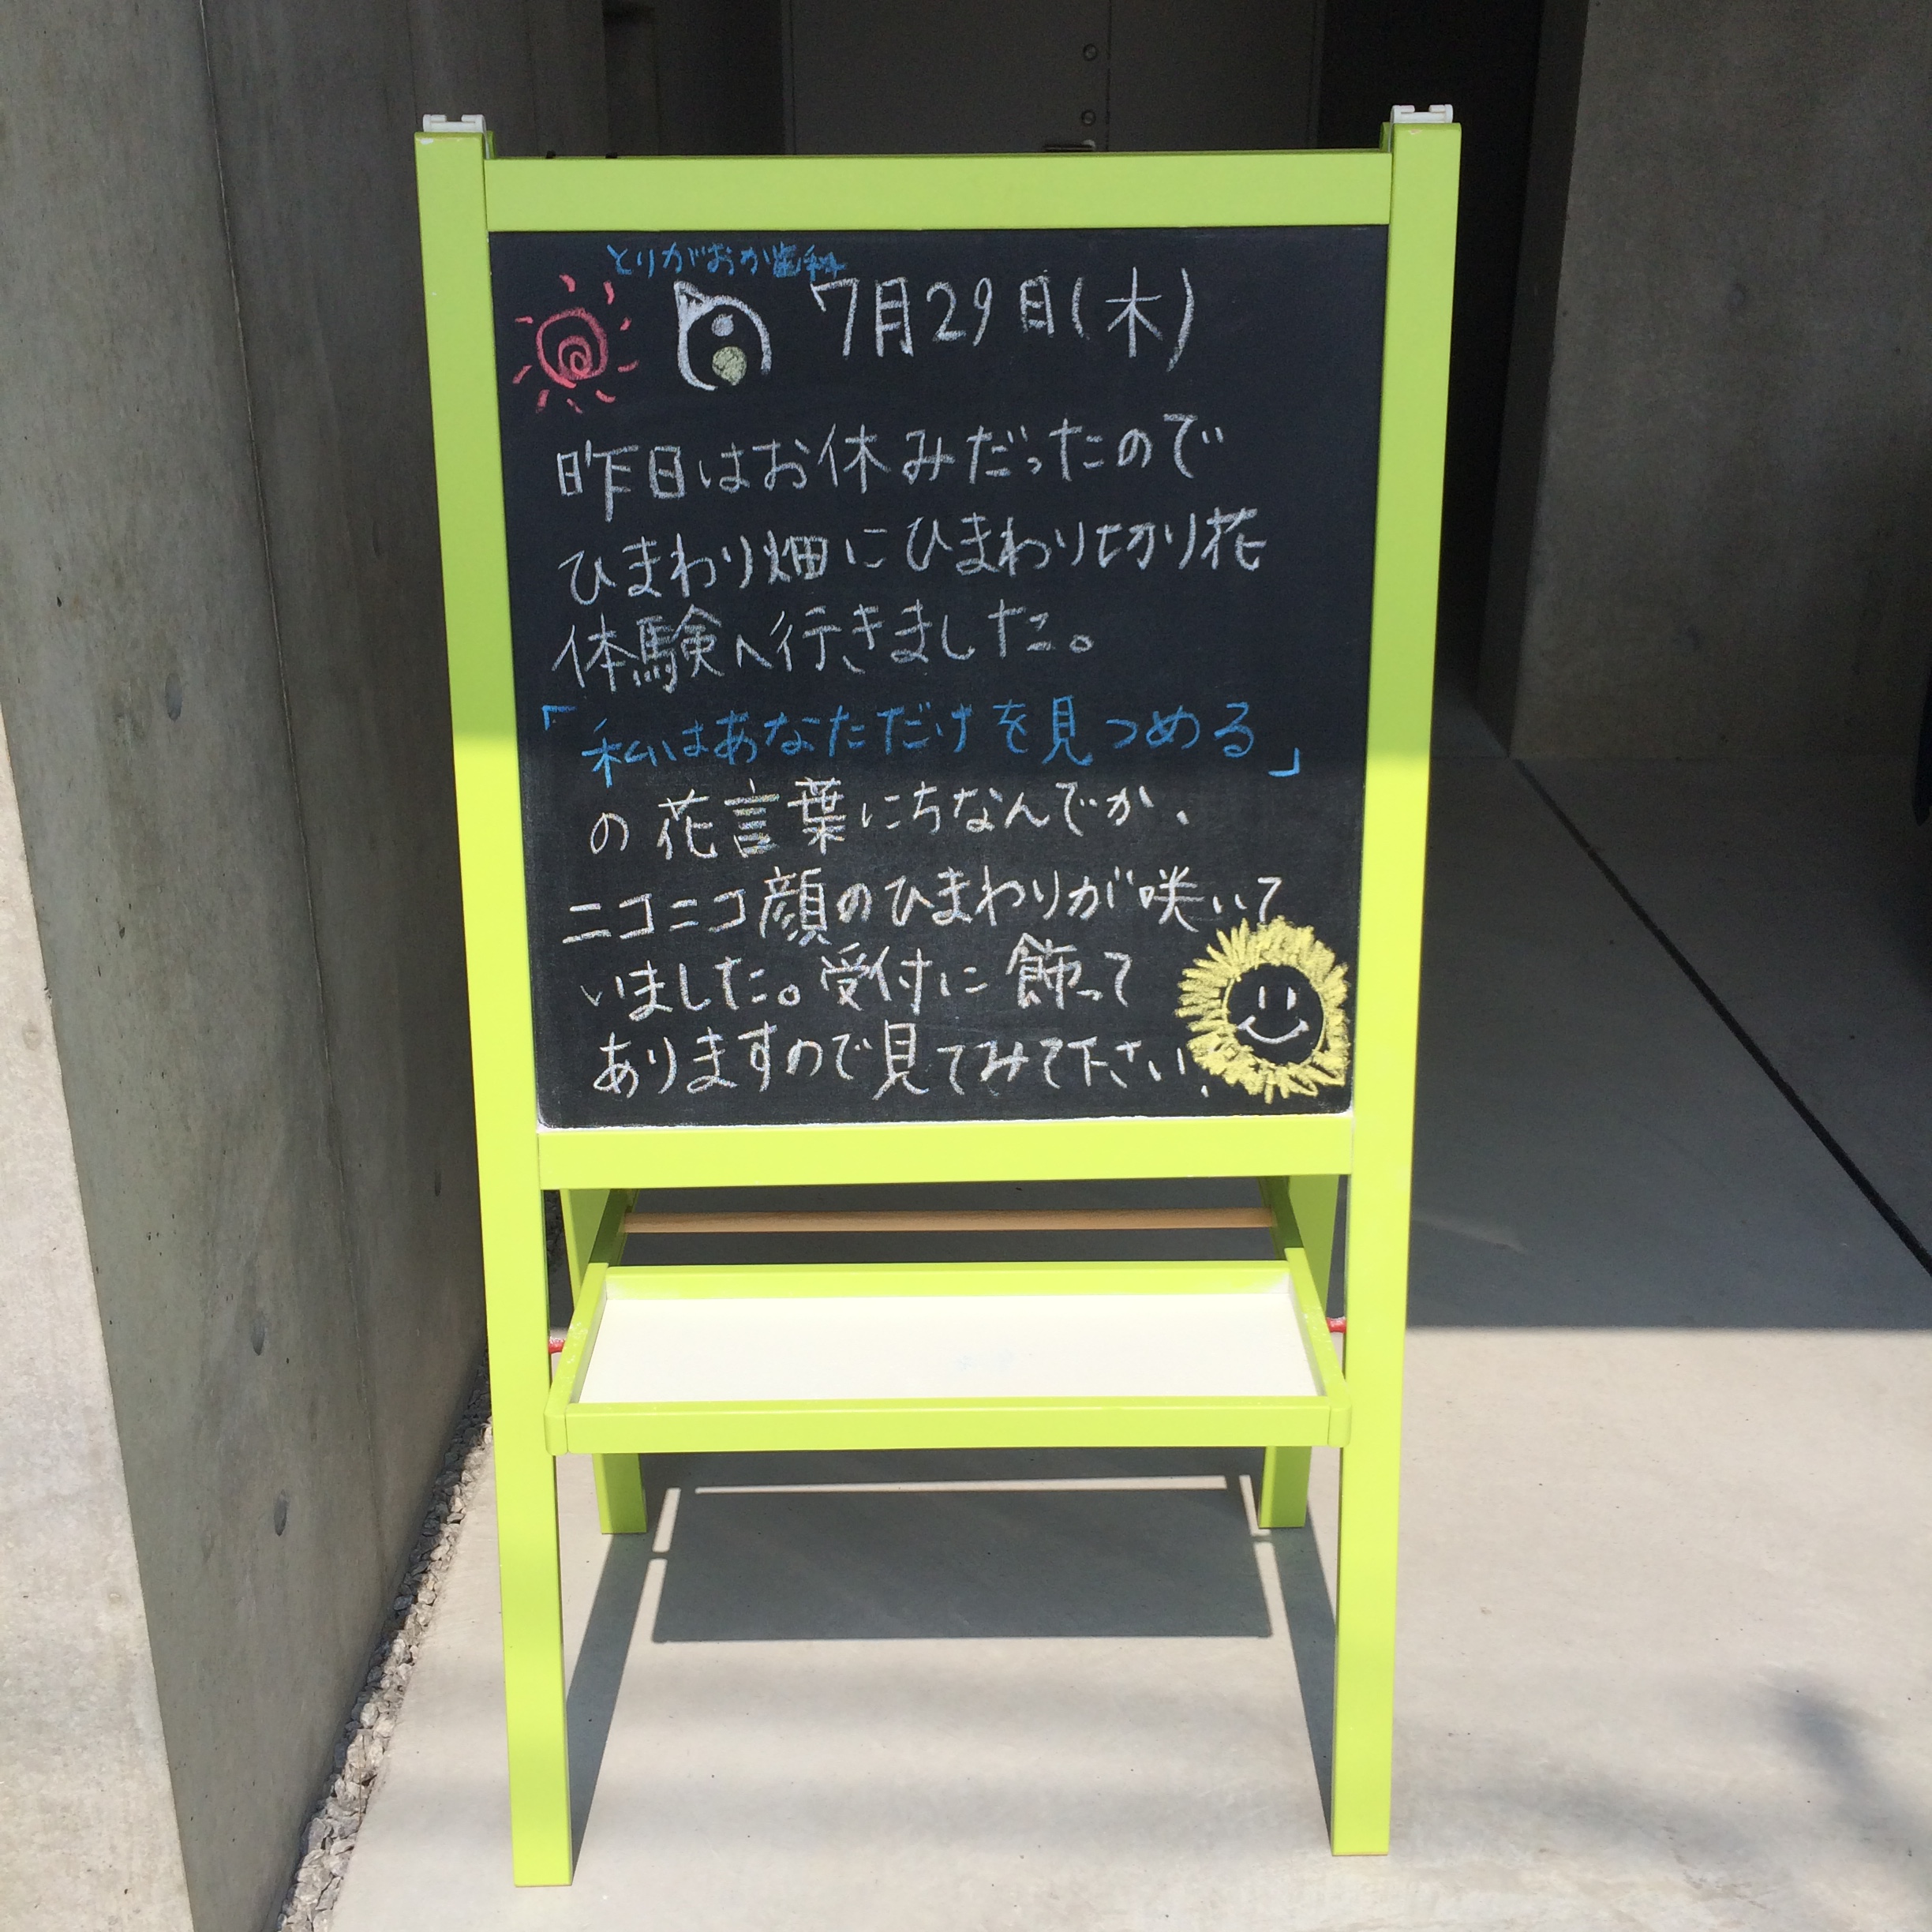 とりがおか歯科
7月29日(木)
昨日はお休みだったので
ひまわり畑にひまわり切り花
体験へ行きました。
「私はあなただけを見つめる」
の花言葉にちなんでか、
ニコニコ顔のひまわりが咲いて
いました。受付に飾って
ありますので見てみて下さい!